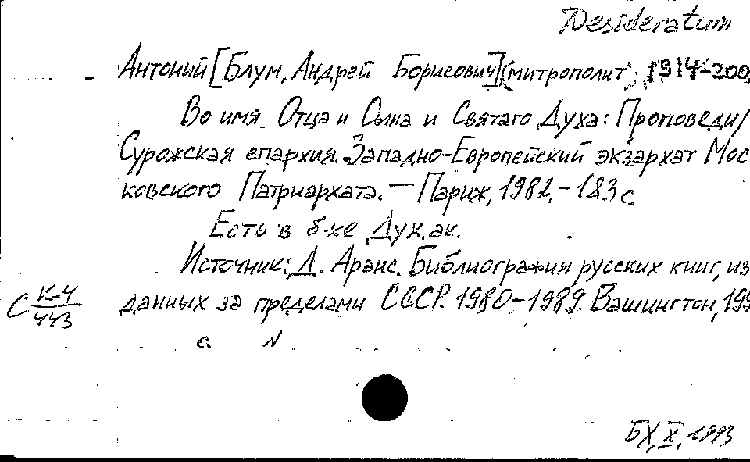 Desideratum
Антоний [Блум, Андрей Борисович] (митрополит; 1914-200
Во имя Отца и Сына и Святаго Духа: Проповеди/
Сурожская епархия. Западно-Европейский экзархат Мос
ковского Патриархата. — Париж, 1982. - 183 с
Есть в б-ке Дух. ак.
Источник: Д. Аранс. Библиография русских книг, из
данных за пределами СССР. 1980-1989. Вашингтон, 199
С К-4
443
с. N
БХ, X, 1993